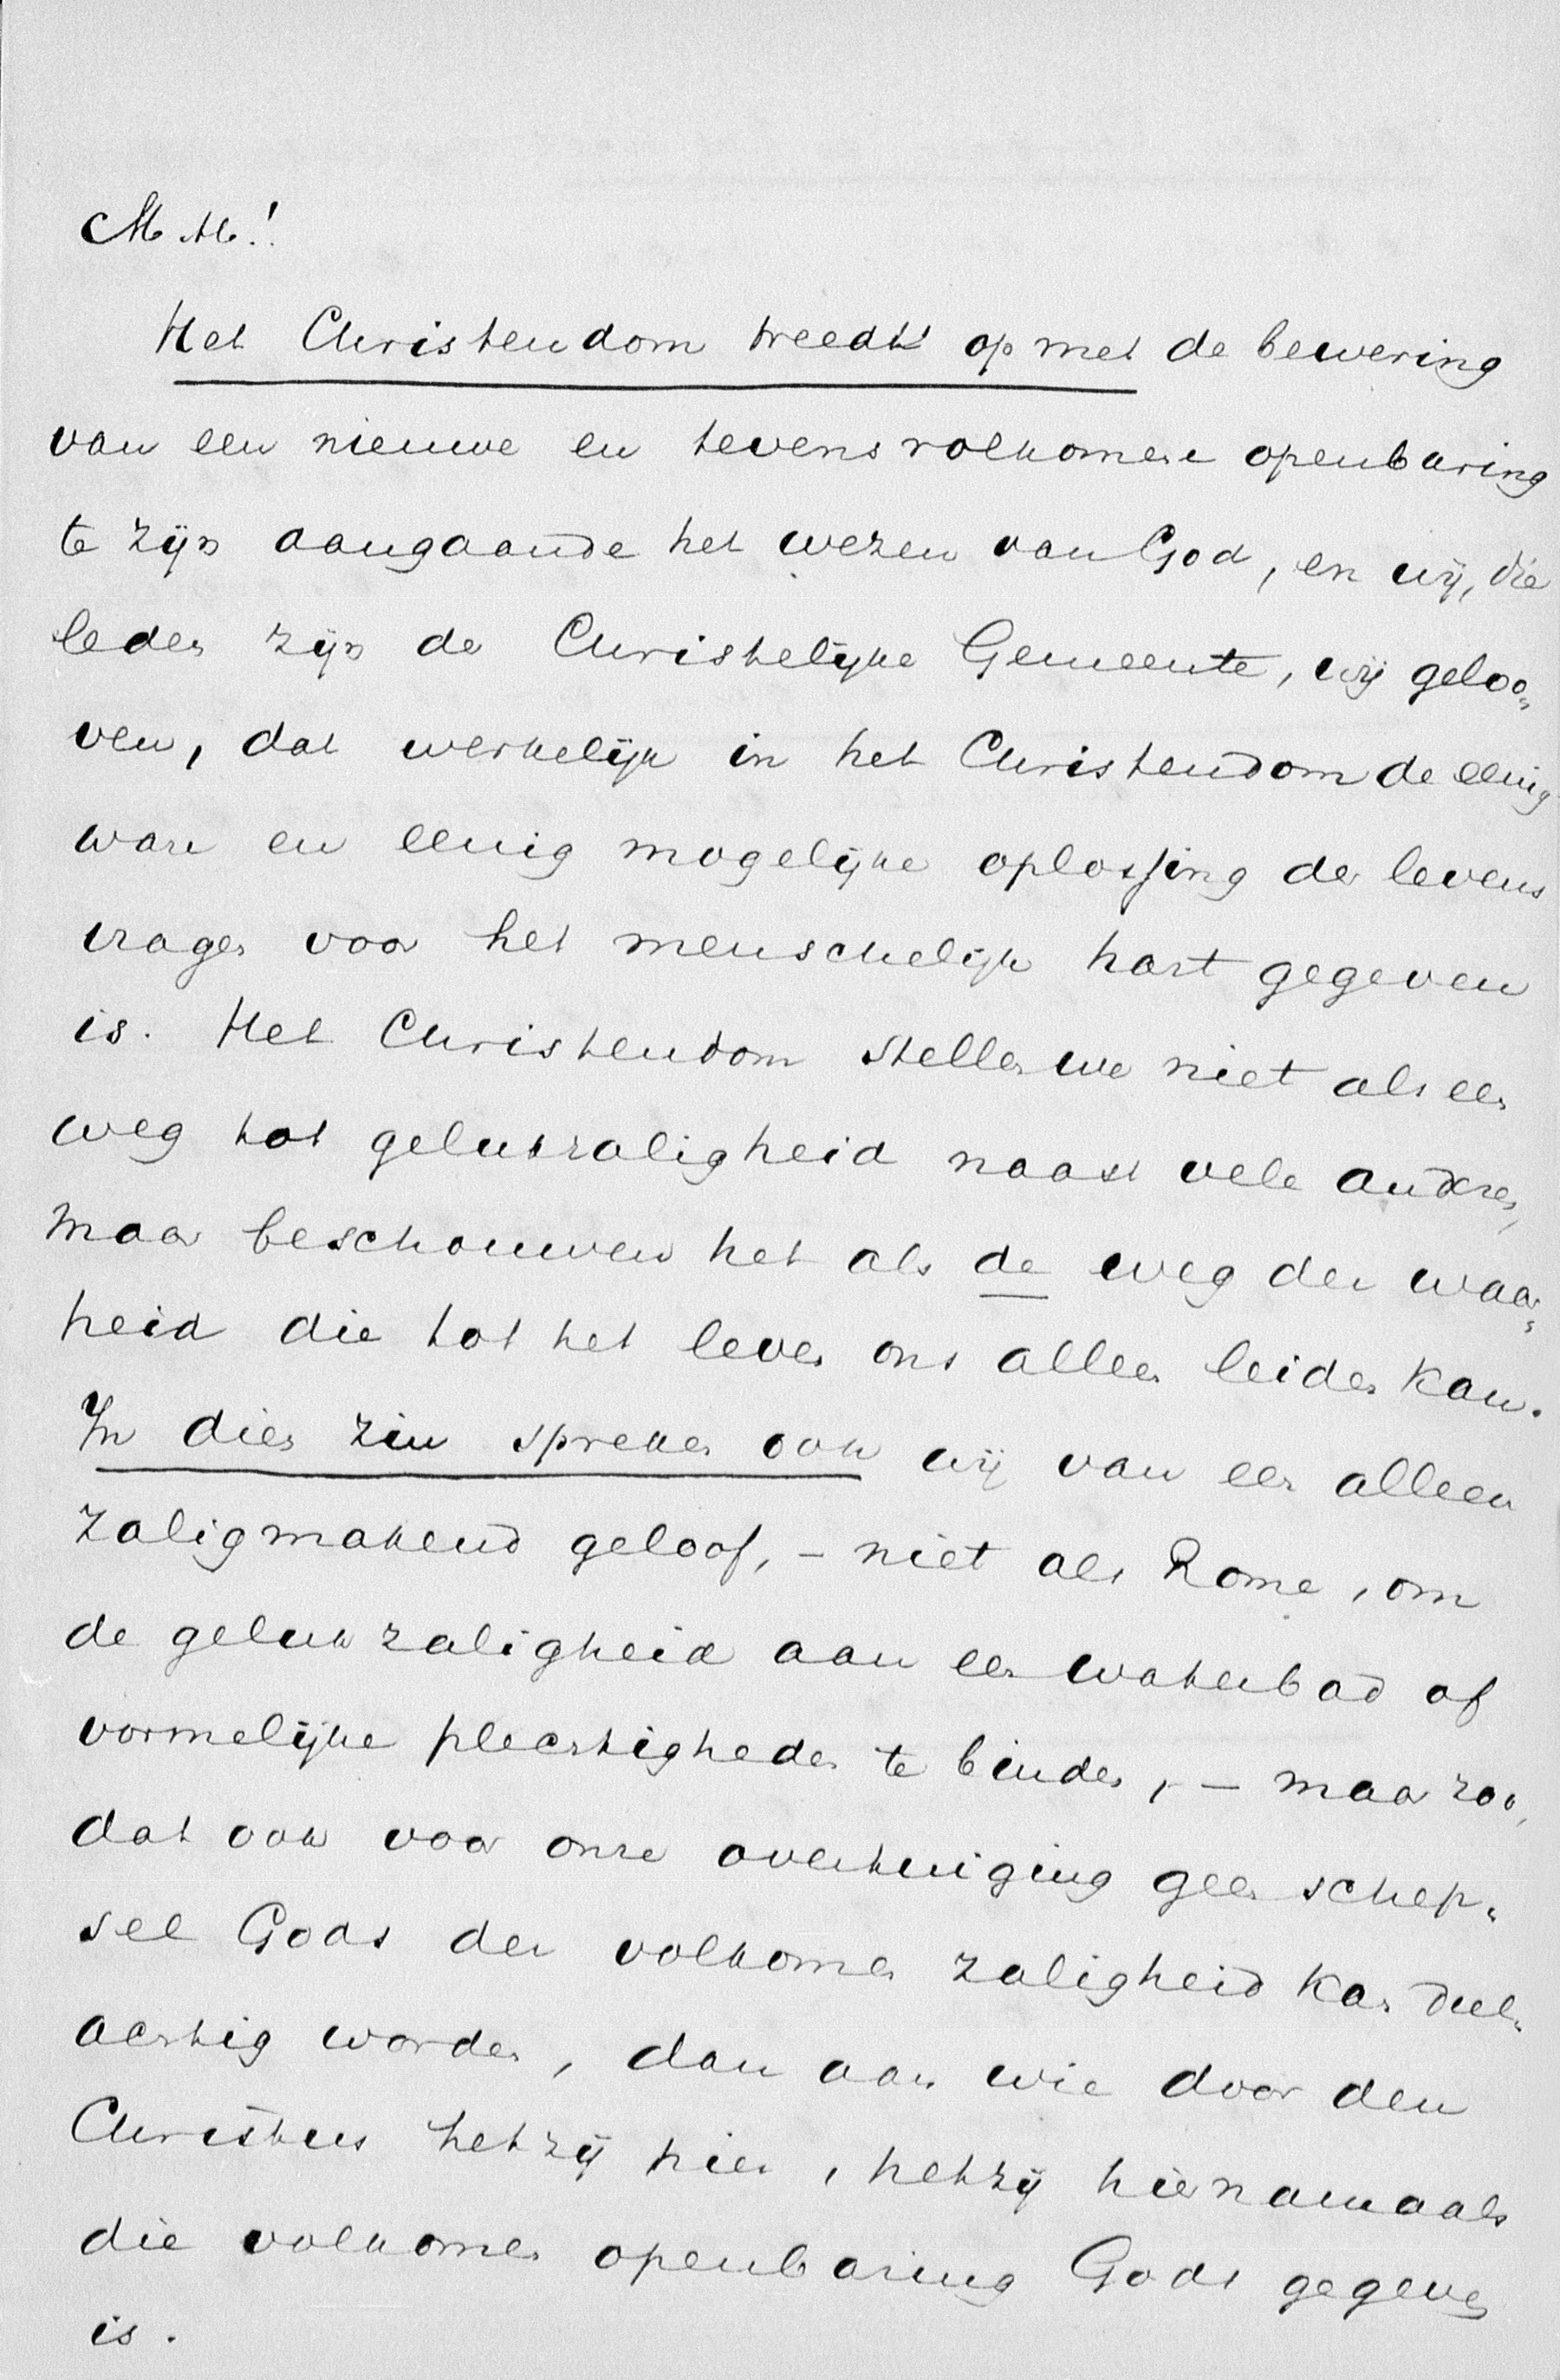 M. H.!
Het Christendom treedt op met de bewering
van een nieuwe en tevens volkomene openbaring
te zijn aangaande het wezen van God, en wij, die
leden zijn der Christelijke Gemeente, wij geloo„
ven, dat werkelijk in het Christendom de eenig
ware en eenig mogelijke oplossing der levens
vragen voor het menschelijk hart gegeven
is. Het Christendom stellen we niet als een
weg tot gelukzaligheid naast vele andere,
maar beschouwen het als de weg der waar„
heid die tot het leven ons alleen leiden kan.
In dien zin spreken ook wij van een alleen
zaligmakend geloof, – niet als Rome, om
de gelukzaligheid aan een waterbad of
vormelijke plechtigheden te binden, – maar zoo,
dat ook voor onze overtuiging geen schep„
sel Gods der volkomen zaligheid kan deel„
achtig worden, dan aan wie door den
Christus hetzij hier, hetzij hiernamaals
die volkomen openbaring Gods gegeven
is.